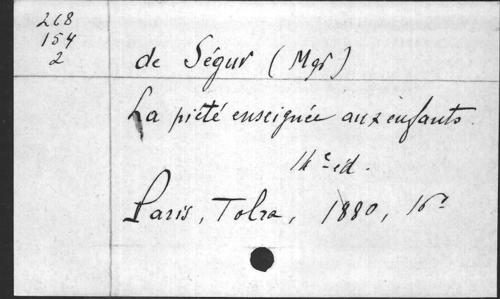 268
154
2
de Ségur (Mgr)
La piété enseignée aux enfants.
14e éd.
Paris, Tolra, 1880, 16°